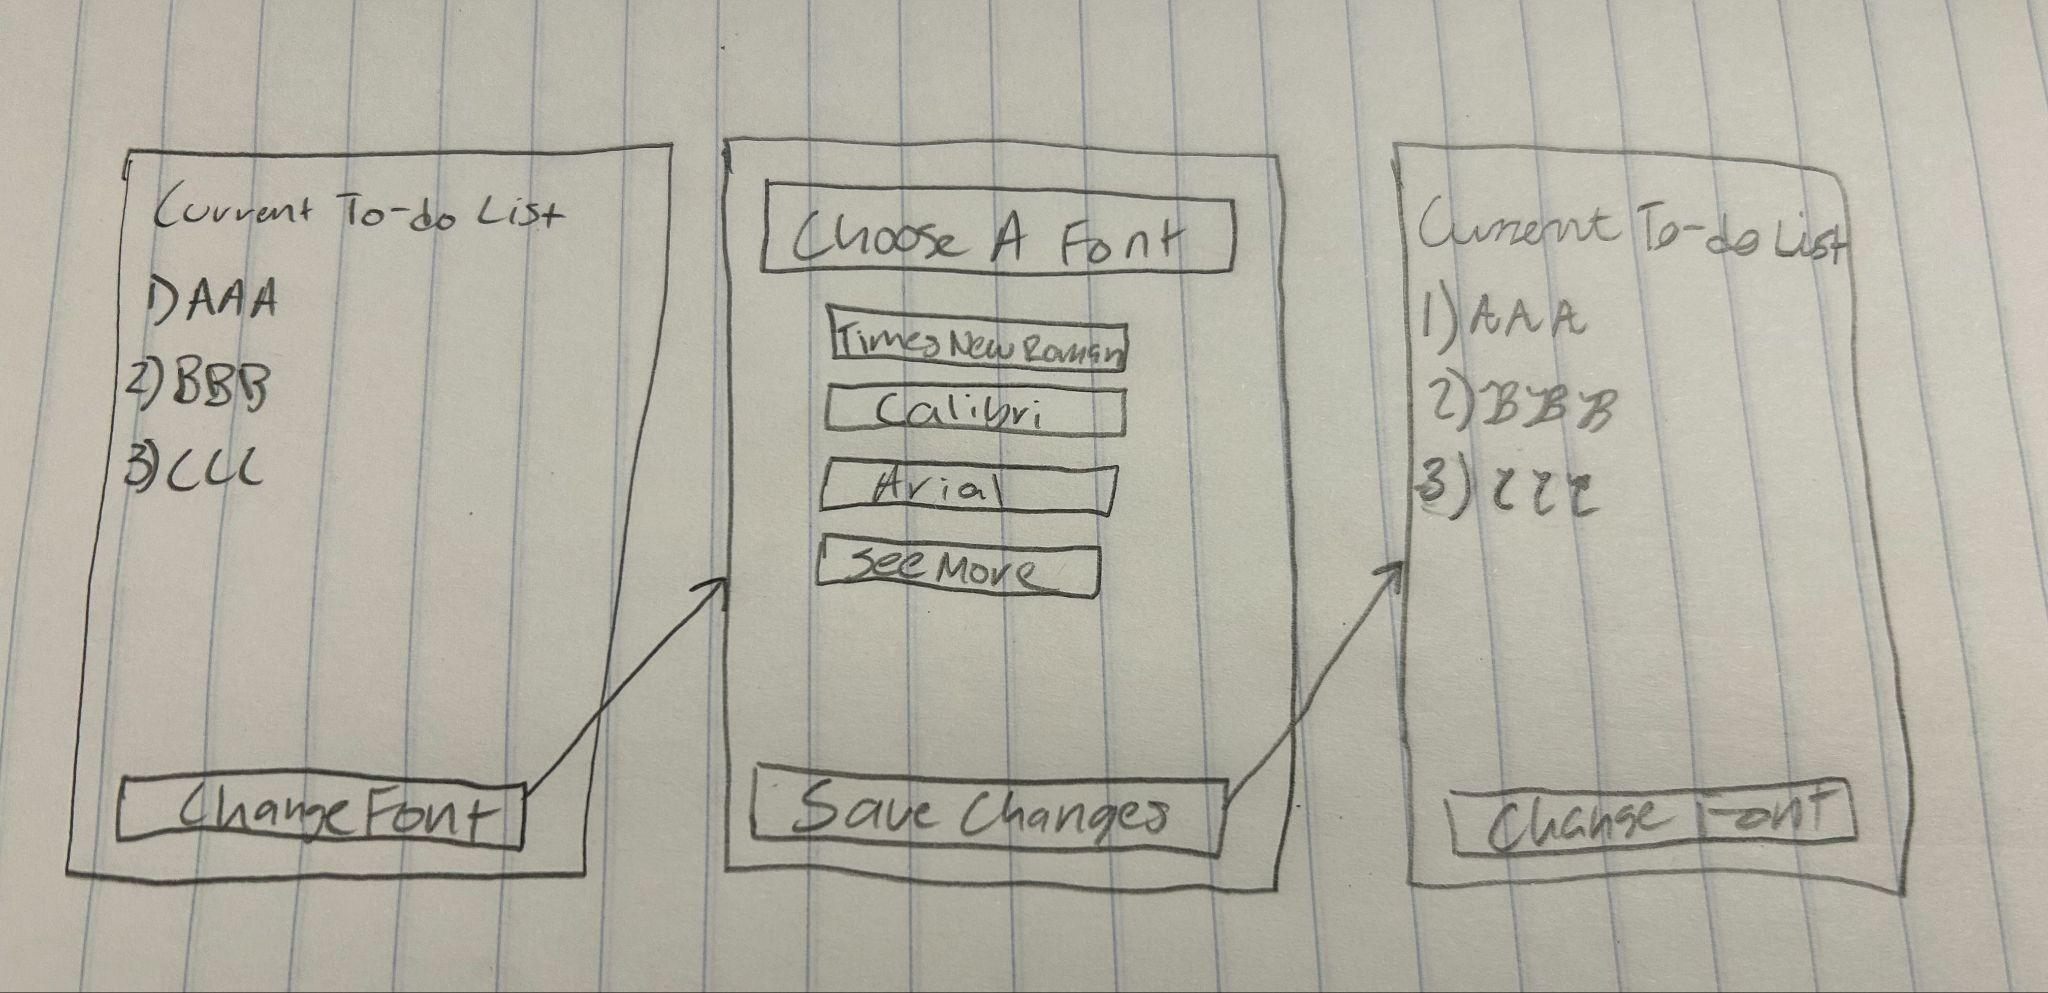 Current To-do List
1) AAA
2) BBB
3) CCC
Change Font
Choose A Font
Times New Roman
Calibri
Arial
See More
Save Changes
Current To-do List
1) AAA
2) BBB
3) CCC
Change Font